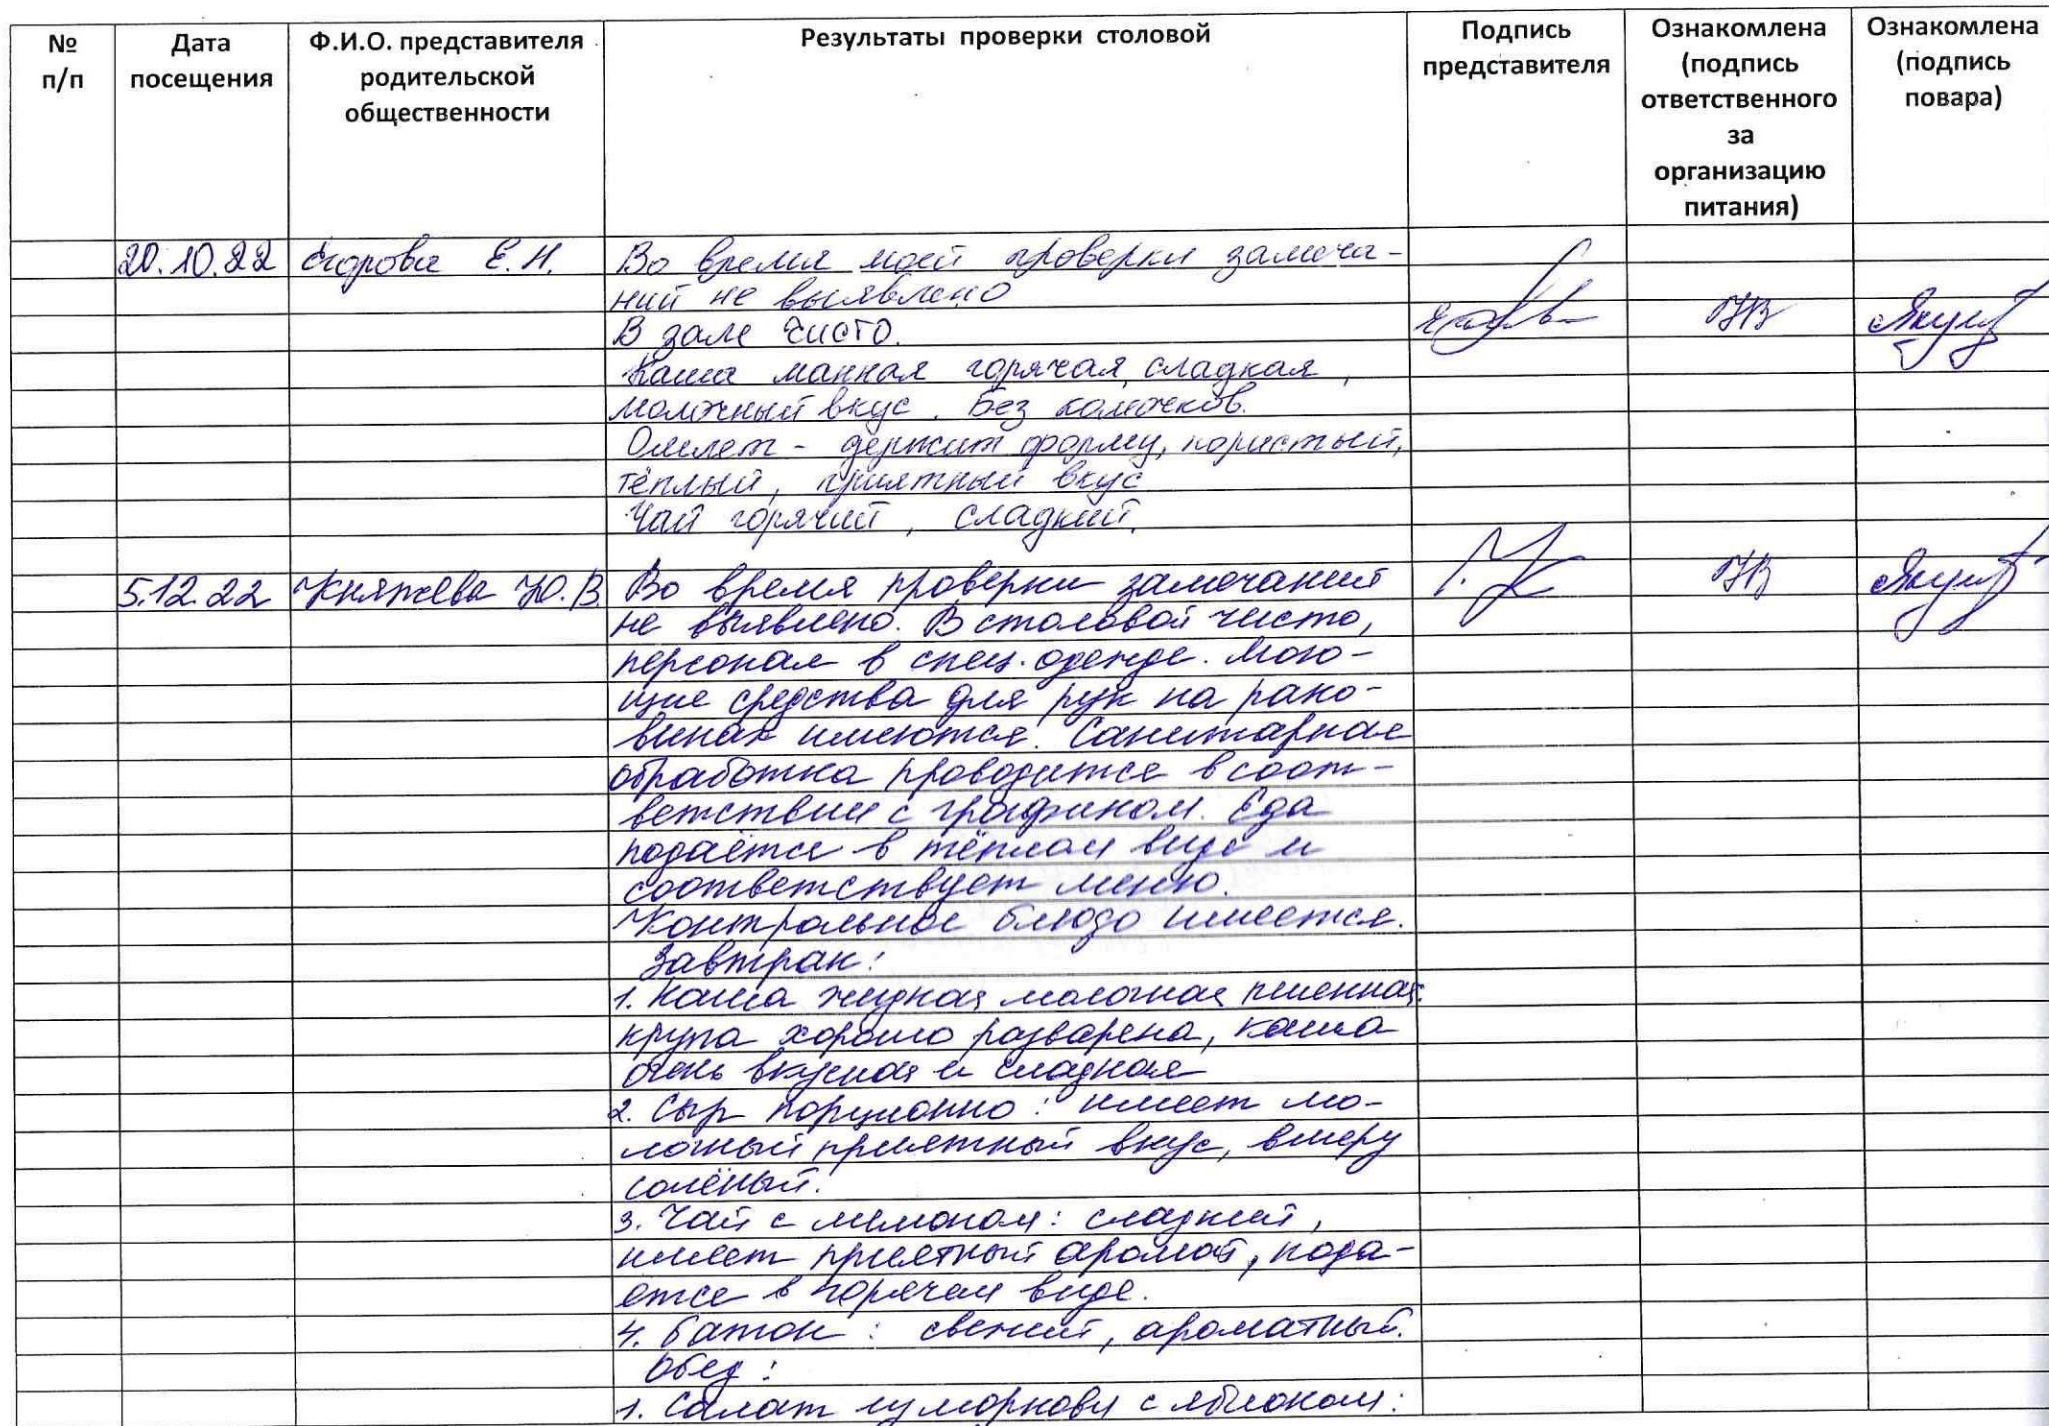 № п/п
Дата посещения
Ф.И.О. представителя родительской общественности
Результаты проверки столовой
Подпись представителя
Ознакомлена (подпись ответственного за организацию питания)
Ознакомлена (подпись повара)
20.10.22 Егорова Е.Н. Во время моей проверки замеча-
ний не выявлено
В зале чисто.
Каша манная горячая, сладкая,
молочный вкус. Без комочков.
Омлет - держит форму, пористый,
тёплый, приятный вкус
Чай горячий, сладкий.
5.12.22 Княжева Ю.В. Во время проверки замечаний
не выявлено. В столовой чисто,
персонал в спец. одежде. Мою-
щие средства для рук на рако-
винах имеются. Санитарная
обработка проводится в соот-
ветствии с графиком. Еда
подаётся в тёплом виде и
соответствует меню.
Контрольное блюдо имеется.
Завтрак:
1. Каша жидкая молочная пшенная:
крупа хорошо разварена, каша
очень вкусная и сладкая
2. Сыр порционно: имеет мо-
лочный приятный вкус, вмеру
солёный.
3. Чай с лимоном: сладкий,
имеет приятный аромат, пода-
ется в горячем виде.
4. Батон: свежий, ароматный.
Обед:
1. Салат из моркови с яблоком: